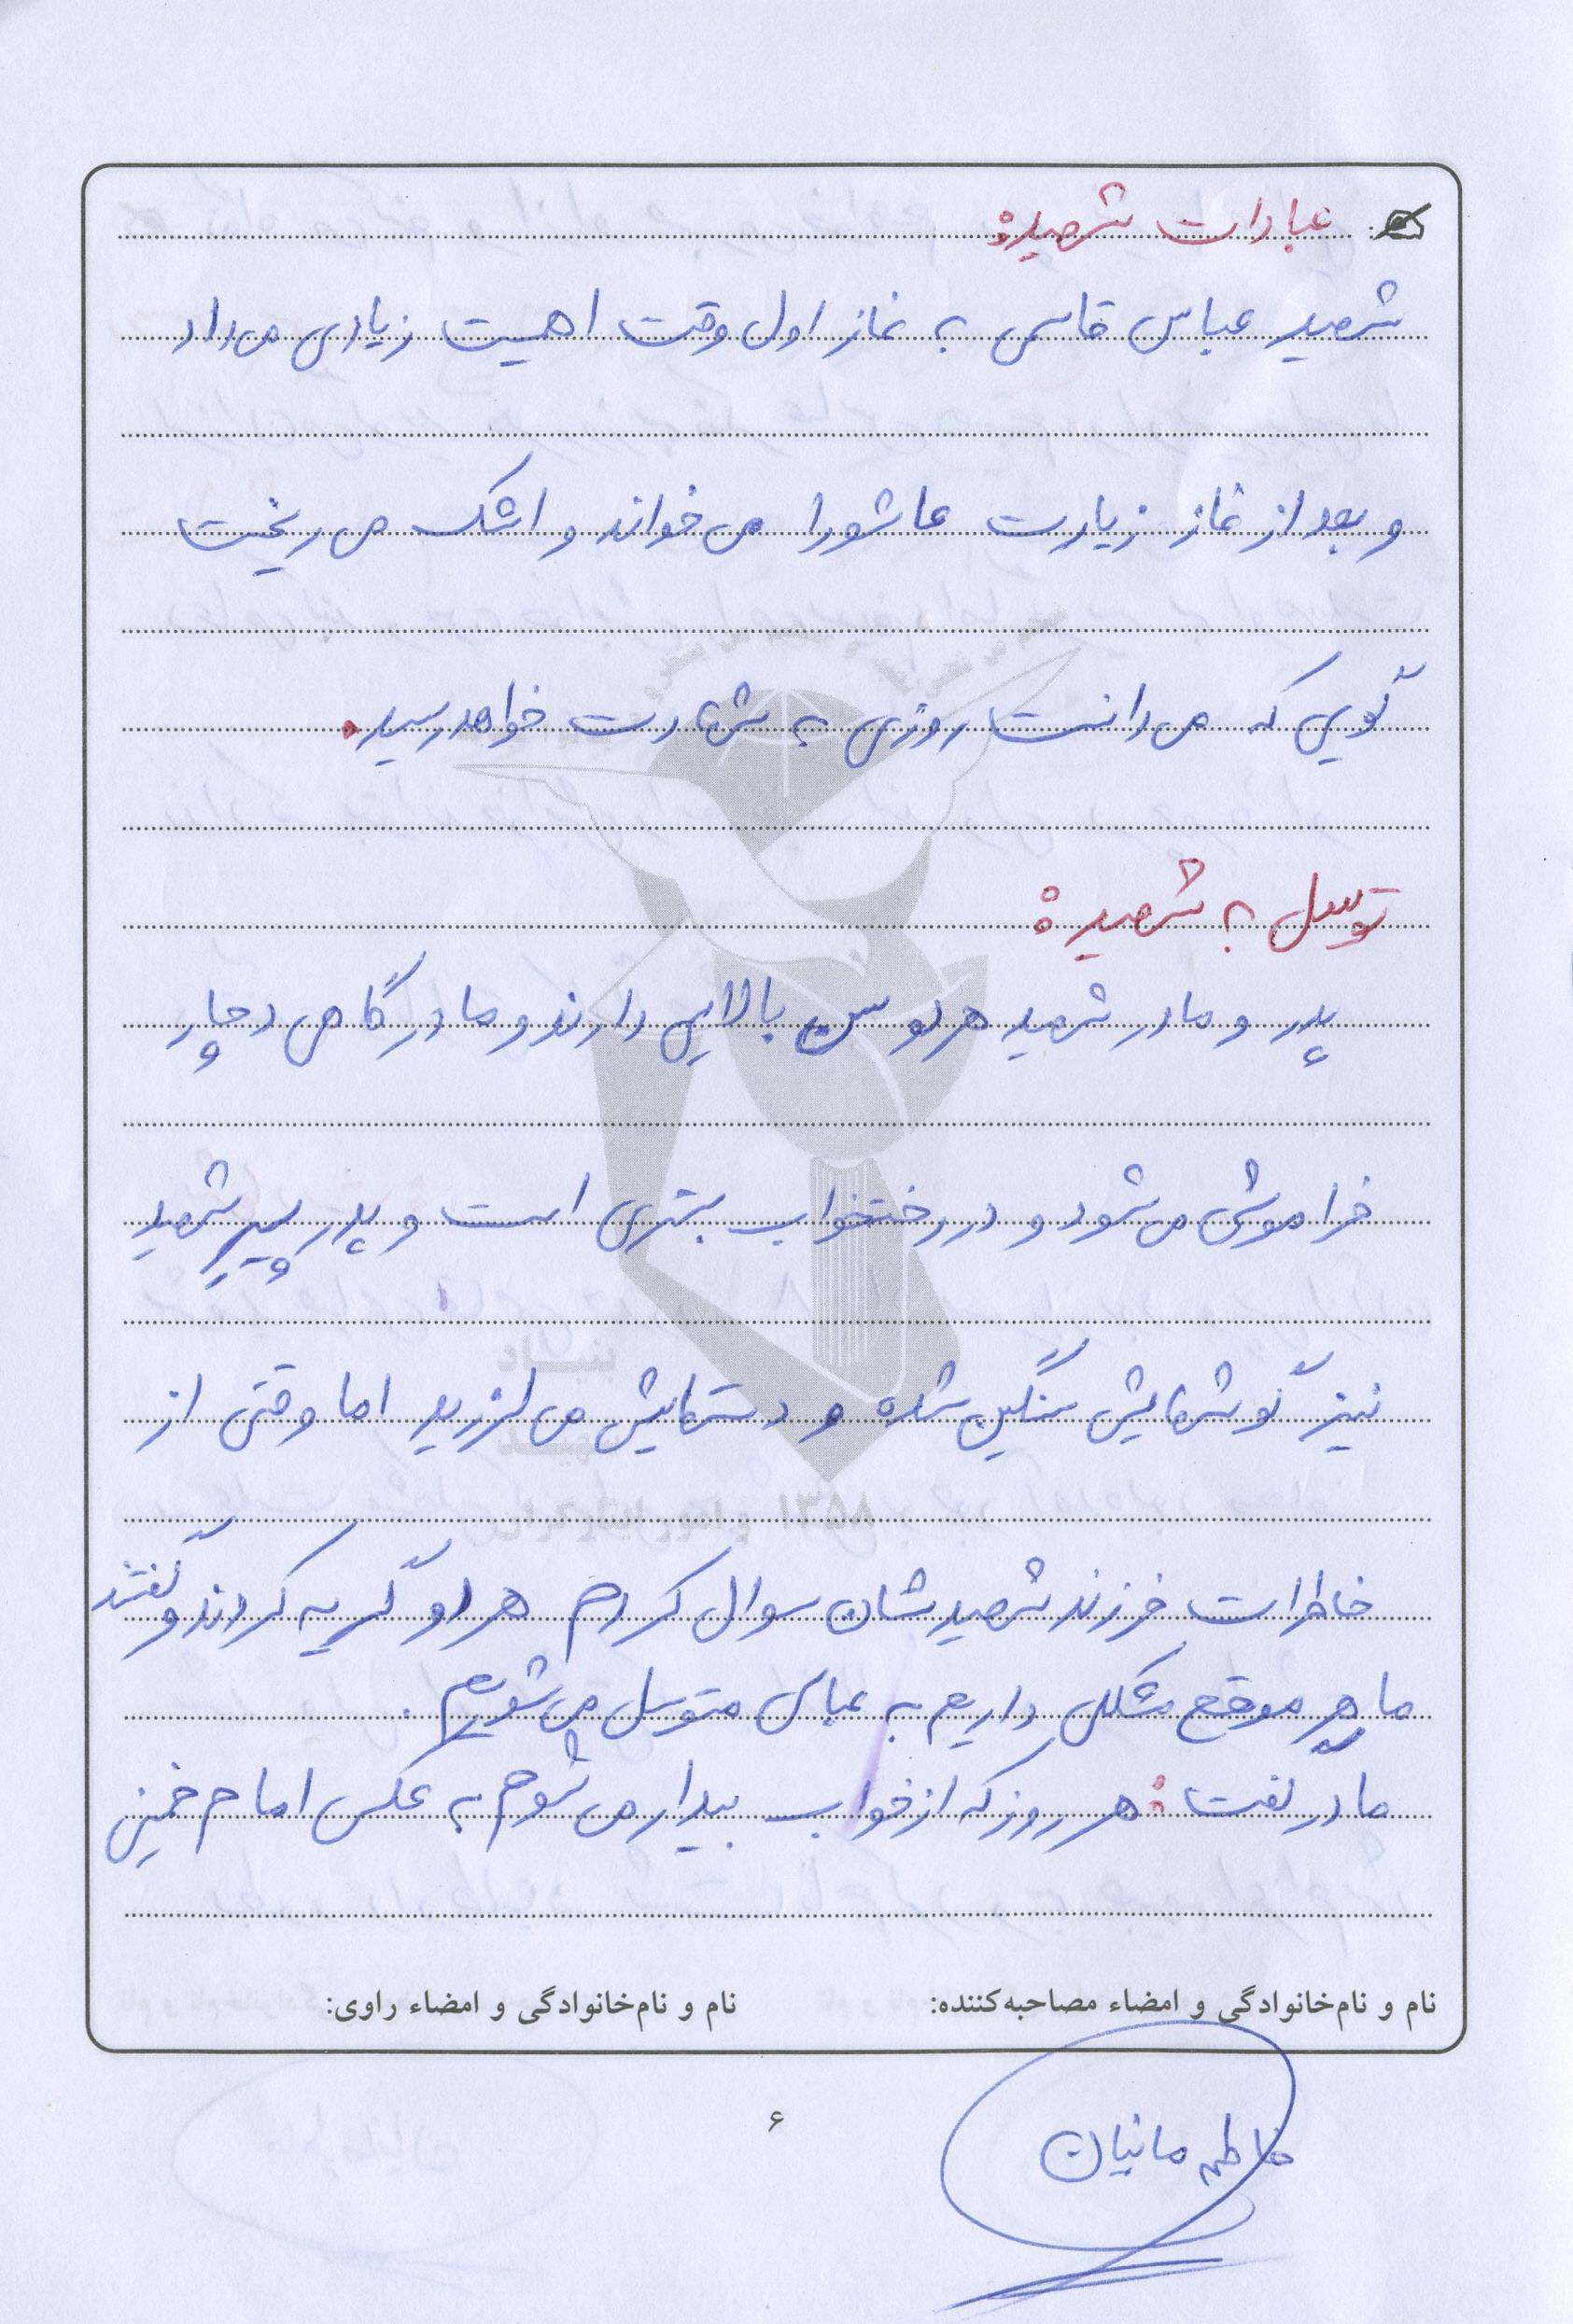 عبادات شهید:
شهید عباس قاسمی به نماز اول وقت اهمیت زیادی می‌داد
و بعد از نماز زیارت عاشورا می‌خواند و اشک می‌ریخت
گویی که می‌دانست روزی به شهادت خواهد رسید.
توسل به شهید:
پدر و مادر شهید هر دو سن بالایی دارند و مادر گاهی دچار
فراموشی می‌شود و در رختخواب بستری است و پدر پیر شهید
نیز گوشهایش سنگین شده و دستهایش می‌لرزید اما وقتی از
خاطرات فرزند شهیدشان سوال کردم هر دو گریه کردند و گفتند
ما هر موقع مشکلی داریم به عباس متوسل می‌شویم.
مادر گفت: هر روز که از خواب بیدار می‌شوم به عکس امام خمینی
نام و نام‌خانوادگی و امضاء مصاحبه‌کننده: نام و نام‌خانوادگی و امضاء راوی:
فاطمه مانیان
۶
بنیاد
شهید
و امور ایثارگران ۱۳۵۸